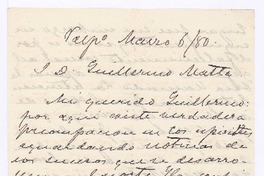 Valpº Marzo 6/80.
S. D. Guillermo Matta
Mi querido Guillermo:
por aqui existe verdadera
preocupacion en los espiritus,
aguardando noticias de
los sucesos que se desarro-